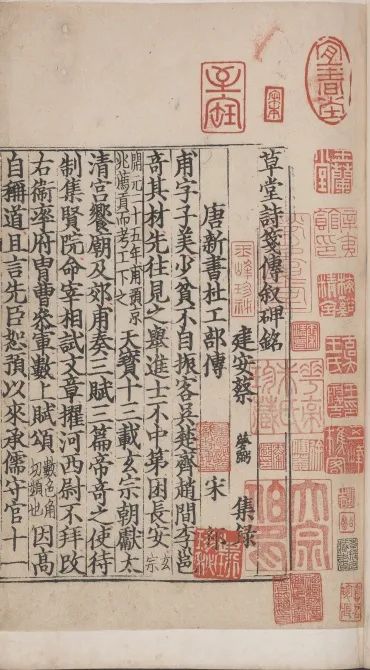 草堂詩箋傳叙碑銘
建安蔡 夢弼 集錄
唐新書杜工部傳 宋 祁
甫字子美少貧不自振客吳越齊趙間李邕
奇其材先往見之舉進士不中第困長安玄宗
開元二十五年甫預京
兆薦貢而考工下之
天寶十三載玄宗朝獻太
清宮饗廟及郊甫奏三賦三篇帝奇之使待
制集賢院命宰相試文章擢河西尉不拜改
右衛率府胄曹參軍數上賦頌數色角切頻也因高
自稱道且言先臣恕預以來承儒守官十一
華亭朱氏珍藏
大宗伯印